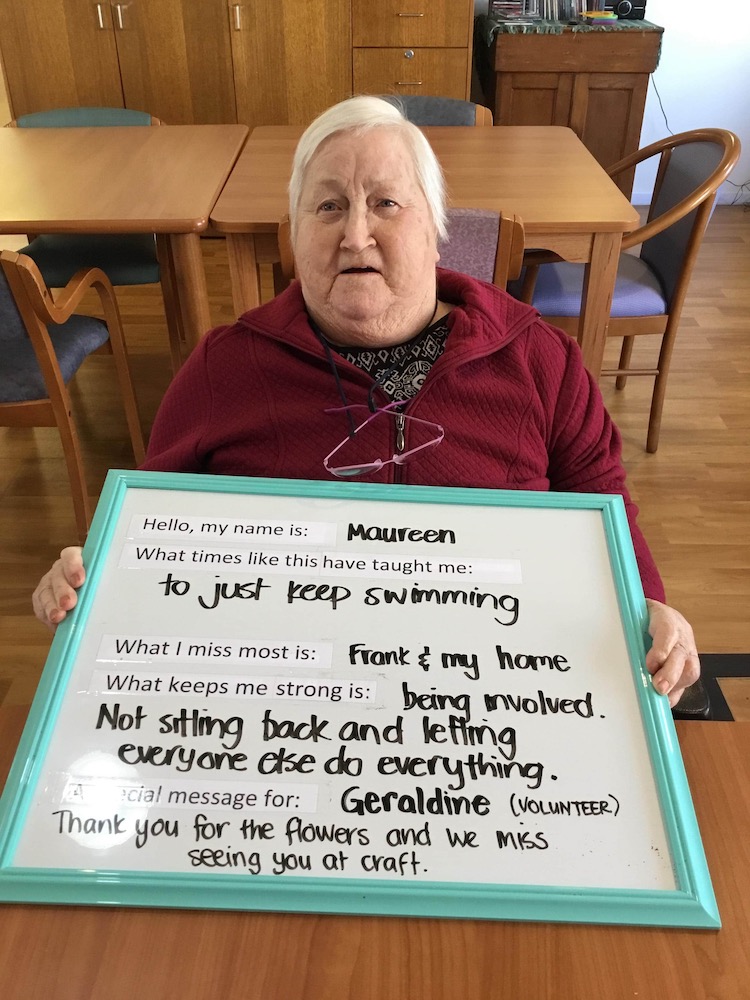 Hello, my name is: Maureen
What times like this have taught me:
to just keep swimming
What I miss most is: Frank & my home
What keeps me strong is: being involved.
Not sitting back and letting
everyone else do everything.
message for: Geraldine (VOLUNTEER)
Thank you for the flowers and we miss
seeing you at craft.